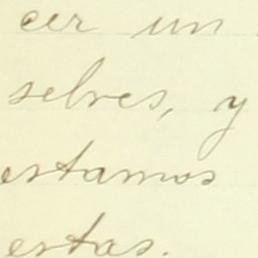 cer un
selves, y
estamos
estas.